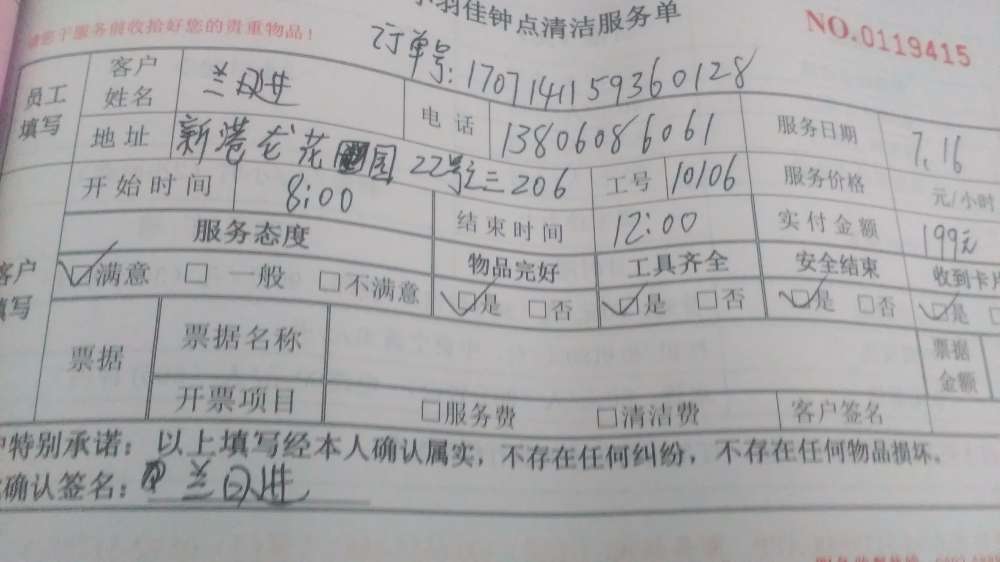 羽佳钟点清洁服务单
服务前收拾好您的贵重物品！
NO.0119415
订单号：1707141159360128
员工填写 客户姓名 电话 13806086061 服务日期 7.16
地址 新港花园22号之三206 工号 10106 服务价格 元/小时
开始时间 8:00 结束时间 12:00 实付金额 199元
服务态度 物品完好 工具齐全 安全结束 收到卡片
客户填写 ☑满意 □一般 □不满意 ☑是 □否 ☑是 □否 ☑是 □否 ☑是 □
票据 票据名称 票据金额
开票项目 □服务费 □清洁费 客户签名
户特别承诺：以上填写经本人确认属实，不存在任何纠纷，不存在任何物品损坏。
确认签名：